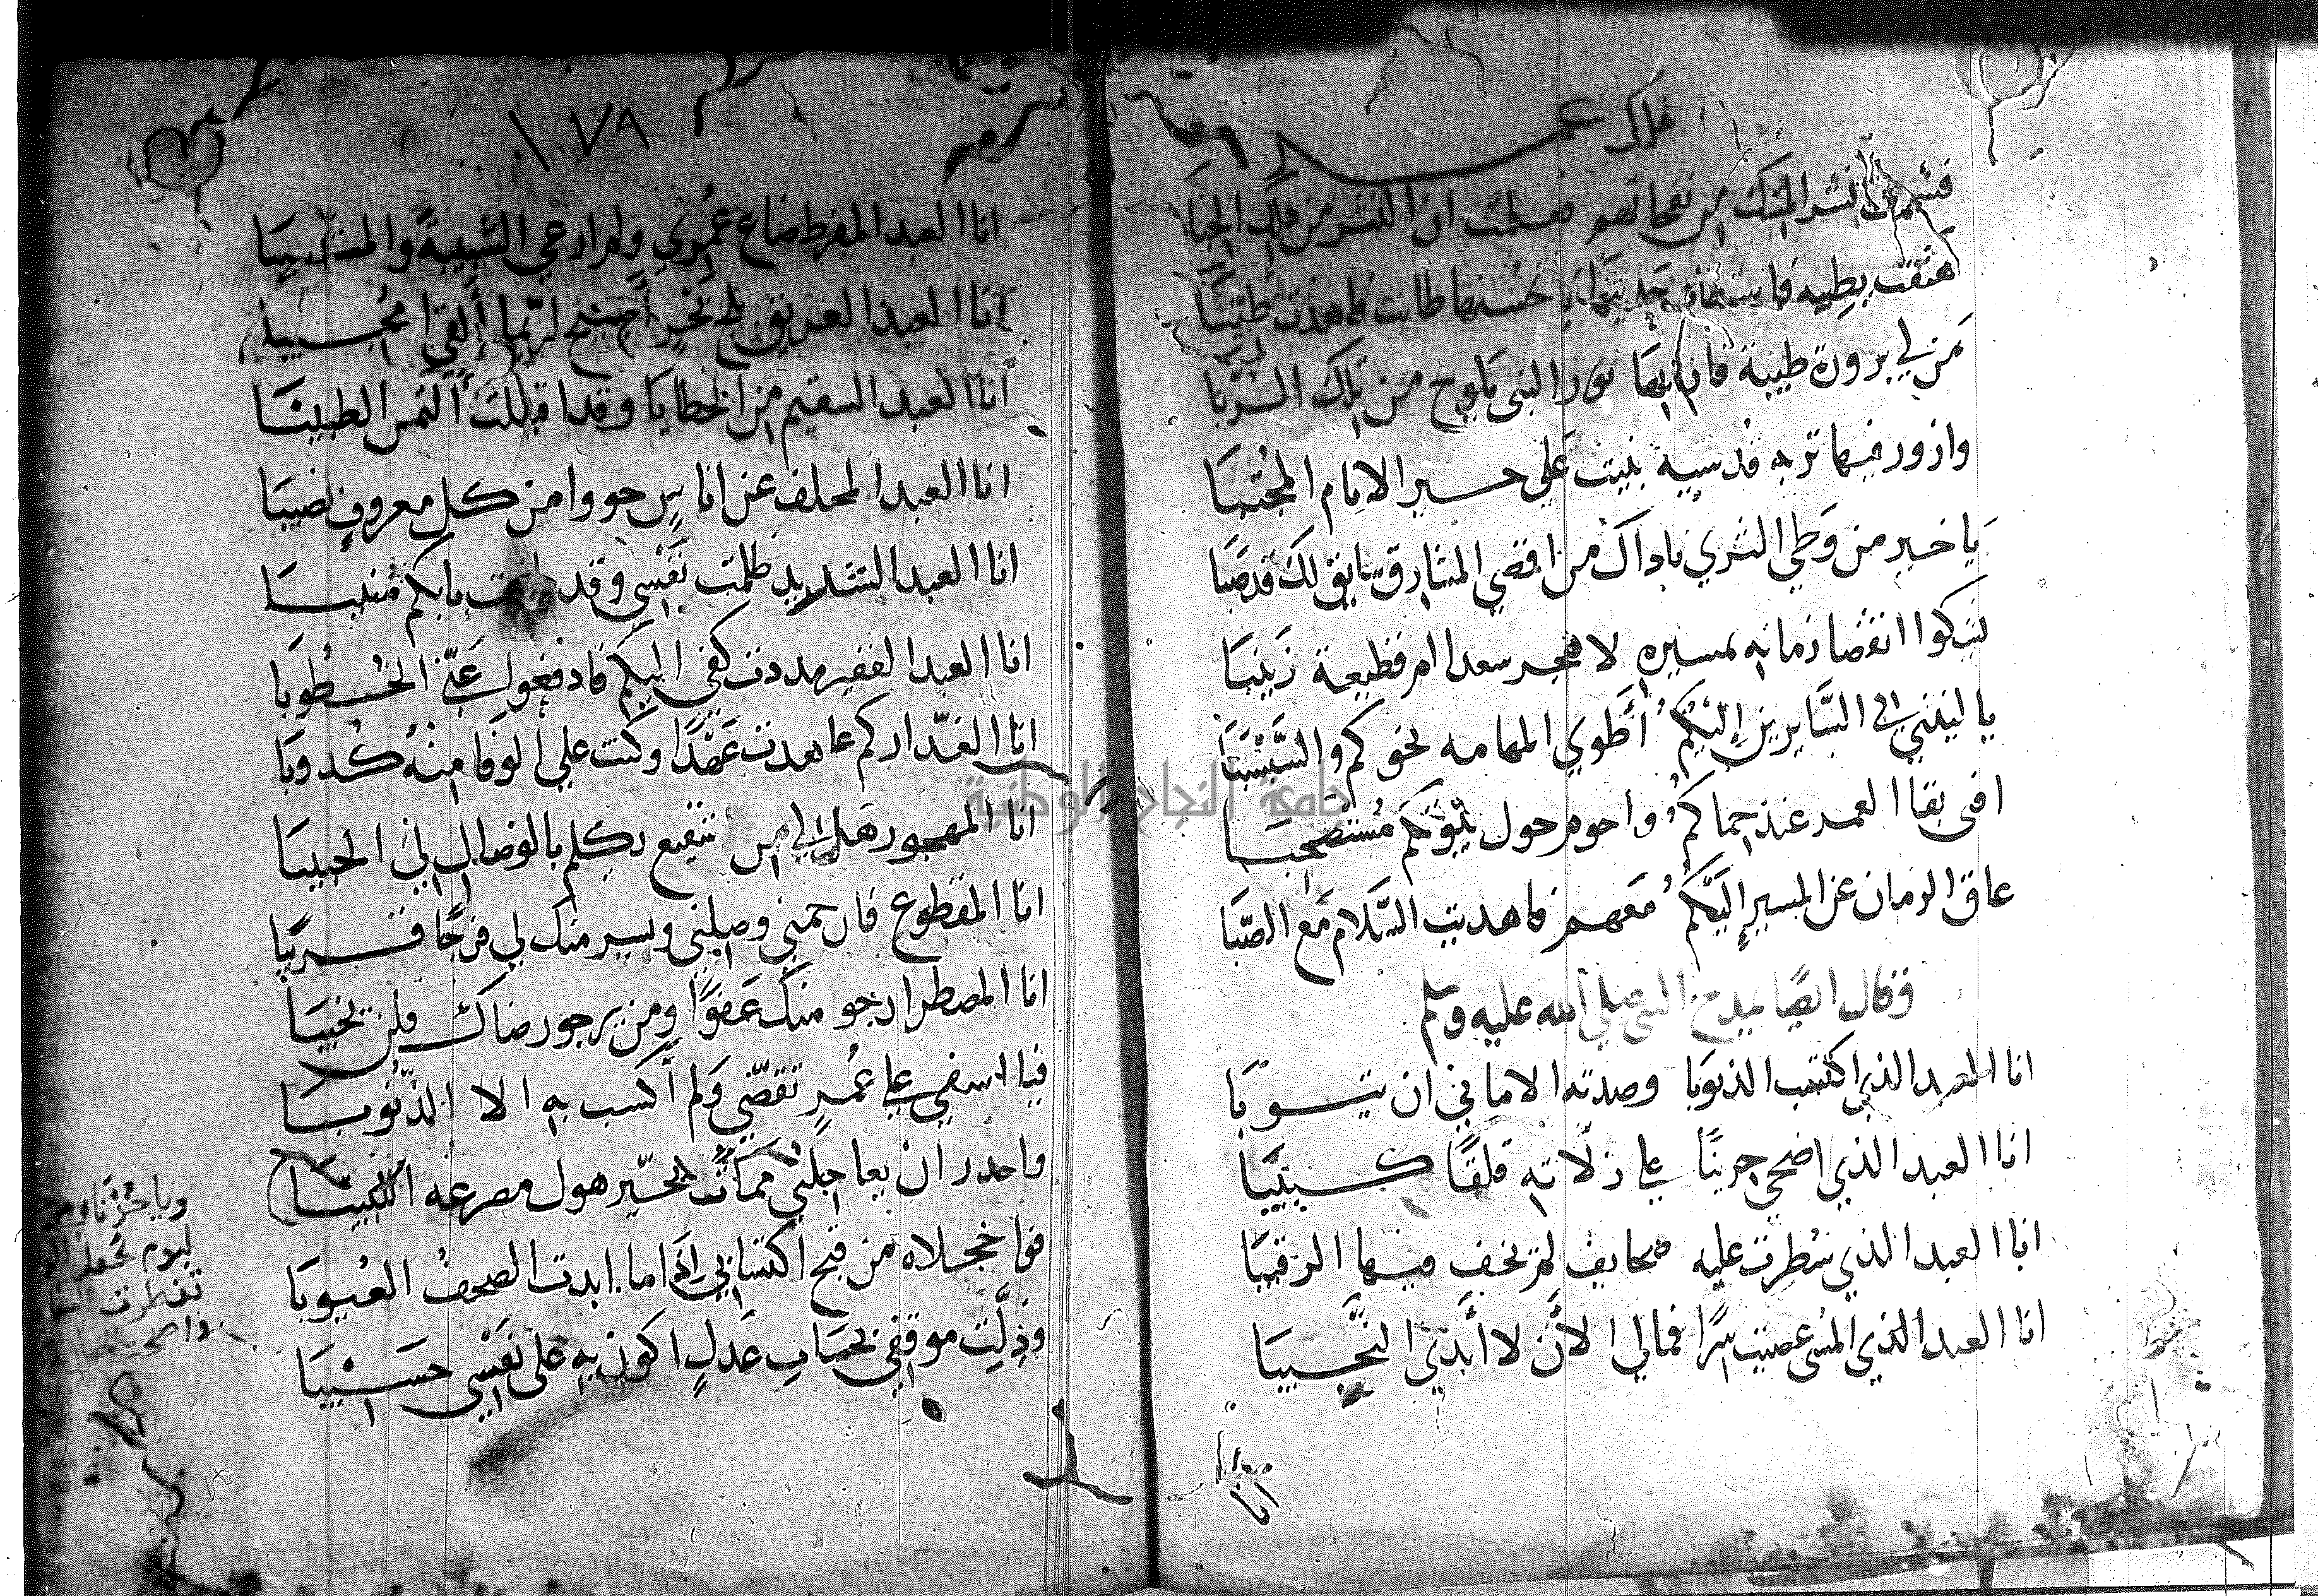 ملك
فشممنا نشر المسك من نفحاتهم فعلمت ان النشر من ذلك الخبا
عثقت بطيبه حسنها طابت فاهدت طيبا
من لي بزورة طيبة فان بها نور النبي يلوح من تلك الربا
وازور فيها تربه قدسيه بنيت علي خير الانام المجتبا
يا خير من وطي الثري ناداك من اقصي المشارق شايق لك قد صبا
يشكوا انقضا زمانه بمسيره لا هجر سعدا ام قطيعة زينبا
يا ليتني في السايرين اليكم أطوي المهامه نحوكم والسبسبا
افني بقا العمر عند حماكم واحوم حول بيوتكم مستصحبا
عاق الزمان عن المسير اليكم معهم فاهديت السلام مع الصبا
وقال ايضا يمدح النبي صلي الله عليه وسلم
انا العبد الذي اكتسب الذنوبا وصدته الاماني ان يتوبا
انا العبد الذي اضحي حزينا علي زلاته قلقا كئيبا
انا العبد الذي سطرت عليه صحايف لم تخف فيها الرقيبا
انا العبد الذي المسي عصيت سرا فمالي الان لا ابدي النحيبا
انا
١٧٩
انا العبد المفرط ضاع عمري ولم ارعي الشبيبة والمشيبا
انا العبد الغريق بلج بحر أصيح لربما ألقي مجيبا
انا العبد السقيم من الخطايا وقد اقبلت ألتمس الطبيبا
انا العبد المخلف عن اناس حووا من كل معروف نصيبا
انا العبد الشديد ظلمت نفسي وقد بابكم منيبا
انا العبد الفقير مددت كفي اليكم فادفعوا عني الخطوبا
انا الغدار كم عاهدت عهدا وكنت علي الوفا منه كدوبا
انا المهجور هل لي من شفيع يكلم بالوصال لي الحبيبا
انا المقطوع فارحمني وصلني ويسر منك لي فرجا قريبا
انا المضطر ارجو منك عفوا ومن يرجو رضاك فلن يخيبا
فيا اسفي علي عمر تقضي ولم أكسب به الا الذنوبا
واحدر ان يعاجلني ممات يحير هول مصرعه اللبيبا
فوا خجلاه من قبح اكتسابي اذا ما ابدت الصحف العيوبا
وذلت موقفي بحساب عدل اكون به علي نفسي حسيبا
ويا حزناه من
ليوم تجعل
تفطرت السما
واصبحت